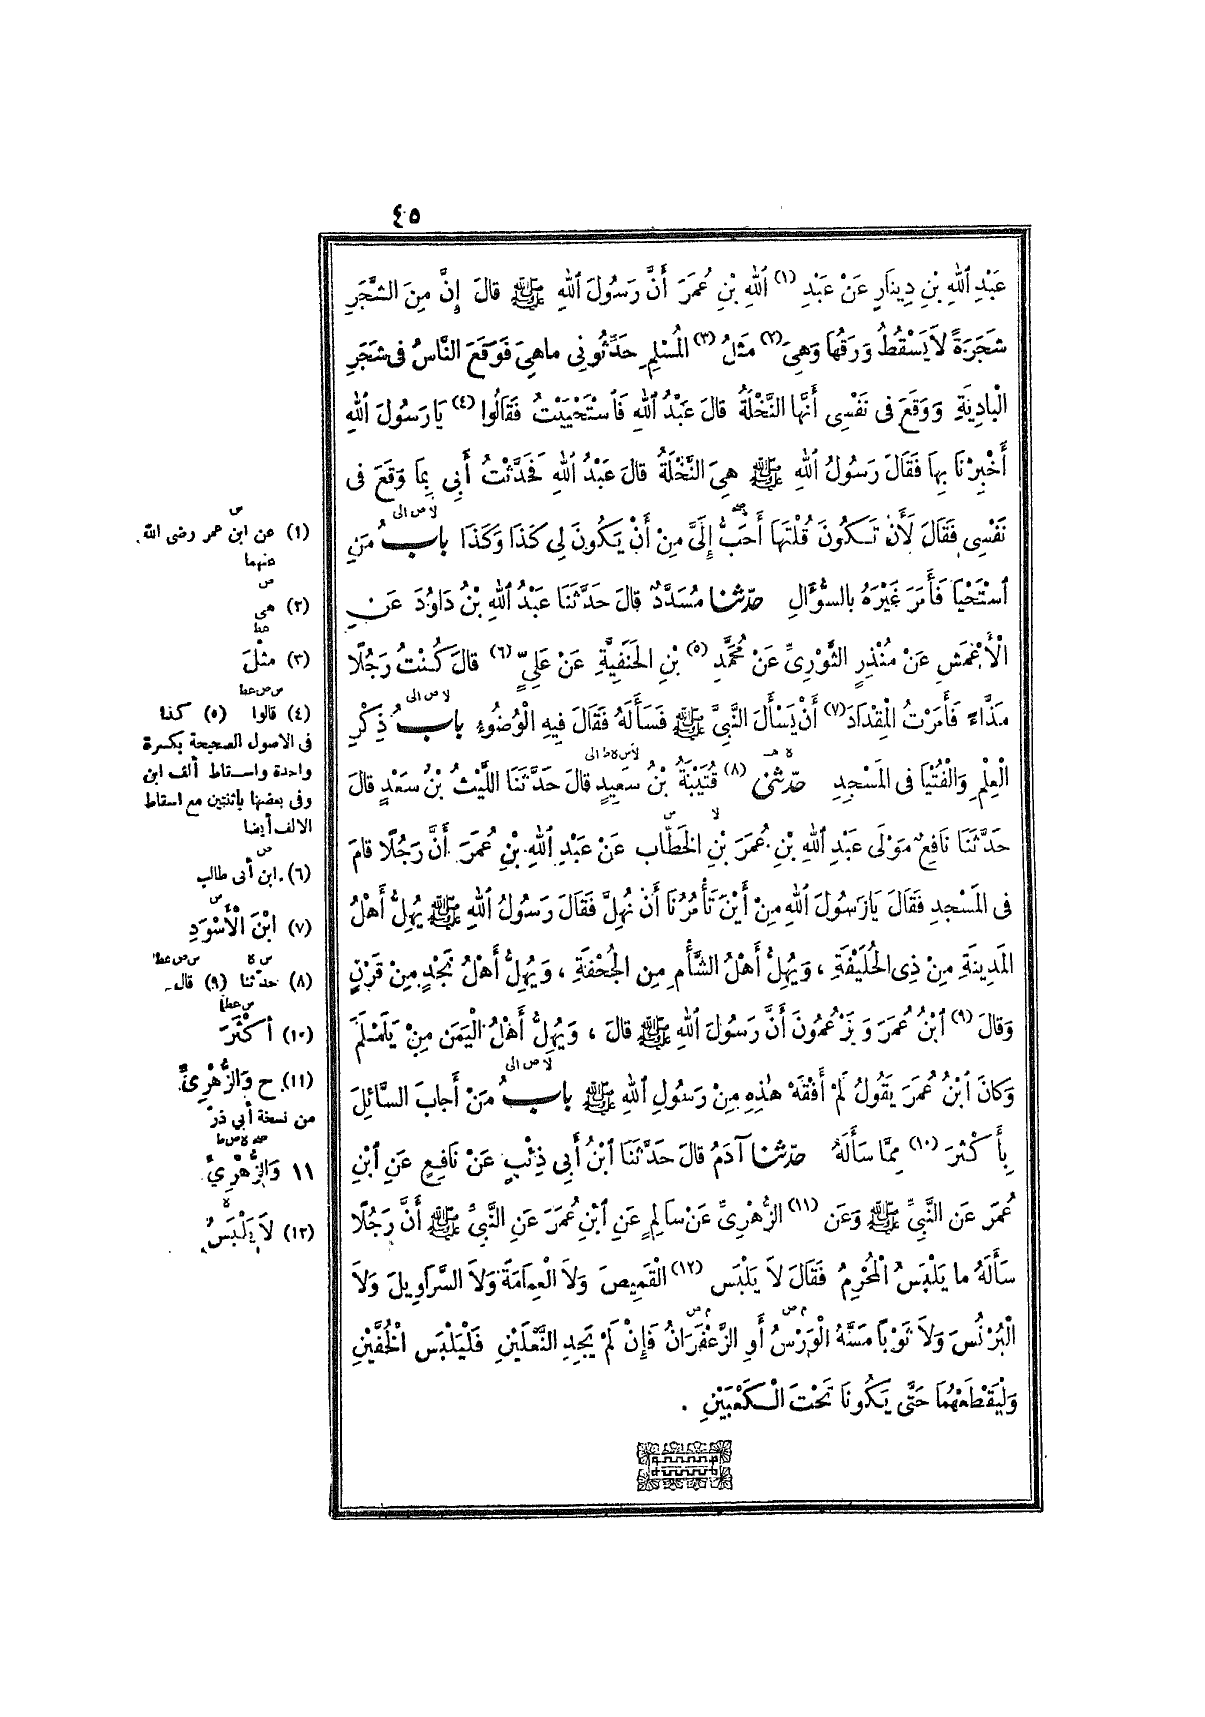 ٤٥
عَبْدِ ٱللهِ بْنِ دِينَارٍ عَنْ عَبْدِ (١) ٱللهِ بْنِ عُمَرَ أَنَّ رَسُولَ ٱللهِ ﷺ قالَ إِنَّ مِنَ الشَّجَرِ
شَجَرَةً لاَ يَسْقُطُ وَرَقُهَا وَهِيَ (٢) مَثَلُ (٣) الْمُسْلِمِ حَدِّثُونِي ماهِيَ فَوَقَعَ النَّاسُ فى شَجَرِ
الْبَادِيَةِ وَوَقَعَ فى نَفْسِى أَنَّهَا النَّخْلَةُ قالَ عَبْدُ ٱللهِ فَٱسْتَحْيَيْتُ فَقَالُوا (٤) يَا رَسُولَ ٱللهِ
أَخْبِرْنَا بِهَا فَقَالَ رَسُولُ ٱللهِ ﷺ هِيَ النَّخْلَةُ قالَ عَبْدُ ٱللهِ فَحَدَّثْتُ أَبِي بِمَا وَقَعَ فى
نَفْسِى فَقَالَ لَأَنْ تَكُونَ قُلْتَهَا أَحَبُّ إِلَيَّ مِنْ أَنْ يَكُونَ لِي كَذَا وَكَذَا بابُ مَنِ
ٱسْتَحْيَا فَأَمَرَ غَيْرَهُ بِالسُّؤَالِ حدّثنا مُسَدَّدٌ قالَ حَدَّثَنَا عَبْدُ ٱللهِ بْنُ دَاوُدَ عَنِ
الْأَعْمَشِ عَنْ مُنْذِرٍ الثَّوْرِيِّ عَنْ مُحَمَّدِ (٥) بْنِ الْحَنَفِيَّةِ عَنْ عَلِيٍّ (٦) قالَ كُنْتُ رَجُلًا
مَذَّاءً فَأَمَرْتُ الْمِقْدَادَ (٧) أَنْ يَسْأَلَ النَّبِيَّ ﷺ فَسَأَلَهُ فَقَالَ فِيهِ الْوُضُوءُ بابُ ذِكْرِ
الْعِلْمِ وَالْفُتْيَا فى الْمَسْجِدِ حدّثنى (٨) قُتَيْبَةُ بْنُ سَعِيدٍ قالَ حَدَّثَنَا اللَّيْثُ بْنُ سَعْدٍ قالَ
حَدَّثَنَا نَافِعٌ مَوْلَى عَبْدِ ٱللهِ بْنِ عُمَرَ بْنِ الْخَطَّابِ عَنْ عَبْدِ ٱللهِ بْنِ عُمَرَ أَنَّ رَجُلًا قامَ
فى الْمَسْجِدِ فَقَالَ يَا رَسُولَ ٱللهِ مِنْ أَيْنَ تَأْمُرُنَا أَنْ نُهِلَّ فَقَالَ رَسُولُ ٱللهِ ﷺ يُهِلُّ أَهْلُ
الْمَدِينَةِ مِنْ ذِى الْحُلَيْفَةِ ، وَيُهِلُّ أَهْلُ الشَّأْمِ مِنَ الْجُحْفَةِ ، وَيُهِلُّ أَهْلُ نَجْدٍ مِنْ قَرْنٍ
وَقالَ (٩) ٱبْنُ عُمَرَ وَيَزْعُمُونَ أَنَّ رَسُولَ ٱللهِ ﷺ قالَ ، وَيُهِلُّ أَهْلُ الْيَمَنِ مِنْ يَلَمْلَمَ
وَكَانَ ٱبْنُ عُمَرَ يَقُولُ لَمْ أَفْقَهْ هٰذِهِ مِنْ رَسُولِ ٱللهِ ﷺ بابُ مَنْ أَجابَ السَّائِلَ
بِأَكْثَرَ (١٠) مِمَّا سَأَلَهُ حدّثنا آدَمُ قالَ حَدَّثَنَا ٱبْنُ أَبِي ذِئْبٍ عَنْ نَافِعٍ عَنِ ٱبْنِ
عُمَرَ عَنِ النَّبِيِّ ﷺ وَعَنِ (١١) الزُّهْرِيِّ عَنْ سَالِمٍ عَنِ ٱبْنِ عُمَرَ عَنِ النَّبِيِّ ﷺ أَنَّ رَجُلًا
سَأَلَهُ ما يَلْبَسُ الْمُحْرِمُ فَقَالَ لاَ يَلْبَسِ (١٢) الْقَمِيصَ وَلاَ الْعِمَامَةَ وَلاَ السَّرَاوِيلَ وَلاَ
الْبُرْنُسَ وَلاَ ثَوْبًا مَسَّهُ الْوَرْسُ أَوِ الزَّعْفَرَانُ فَإِنْ لَمْ يَجِدِ النَّعْلَيْنِ فَلْيَلْبَسِ الْخُفَّيْنِ
وَلْيَقْطَعْهُمَا حَتَّى يَكُونَا تَحْتَ الْكَعْبَيْنِ .
(١) عن ابن عمر رضى الله
عنهما
(٢) هى
(٣) مِثْلَ
(٤) قالوا (٥) كذا
فى الاصول الصحيحة بكسرة
واحدة واسقاط ألف ابن
وفى بعضها باثنتين مع اسقاط
الالف أيضا
(٦) ابن أبى طالب
(٧) ابْنَ الْأَسْوَدِ
(٨) حدّثنا (٩) قال
(١٠) أَكْثَرَ
(١١) ح وَالزُّهْرِيِّ
من نسخة أبي ذر
١١ وَالزُّهْرِيِّ
(١٢) لاَ يَلْبَسُ